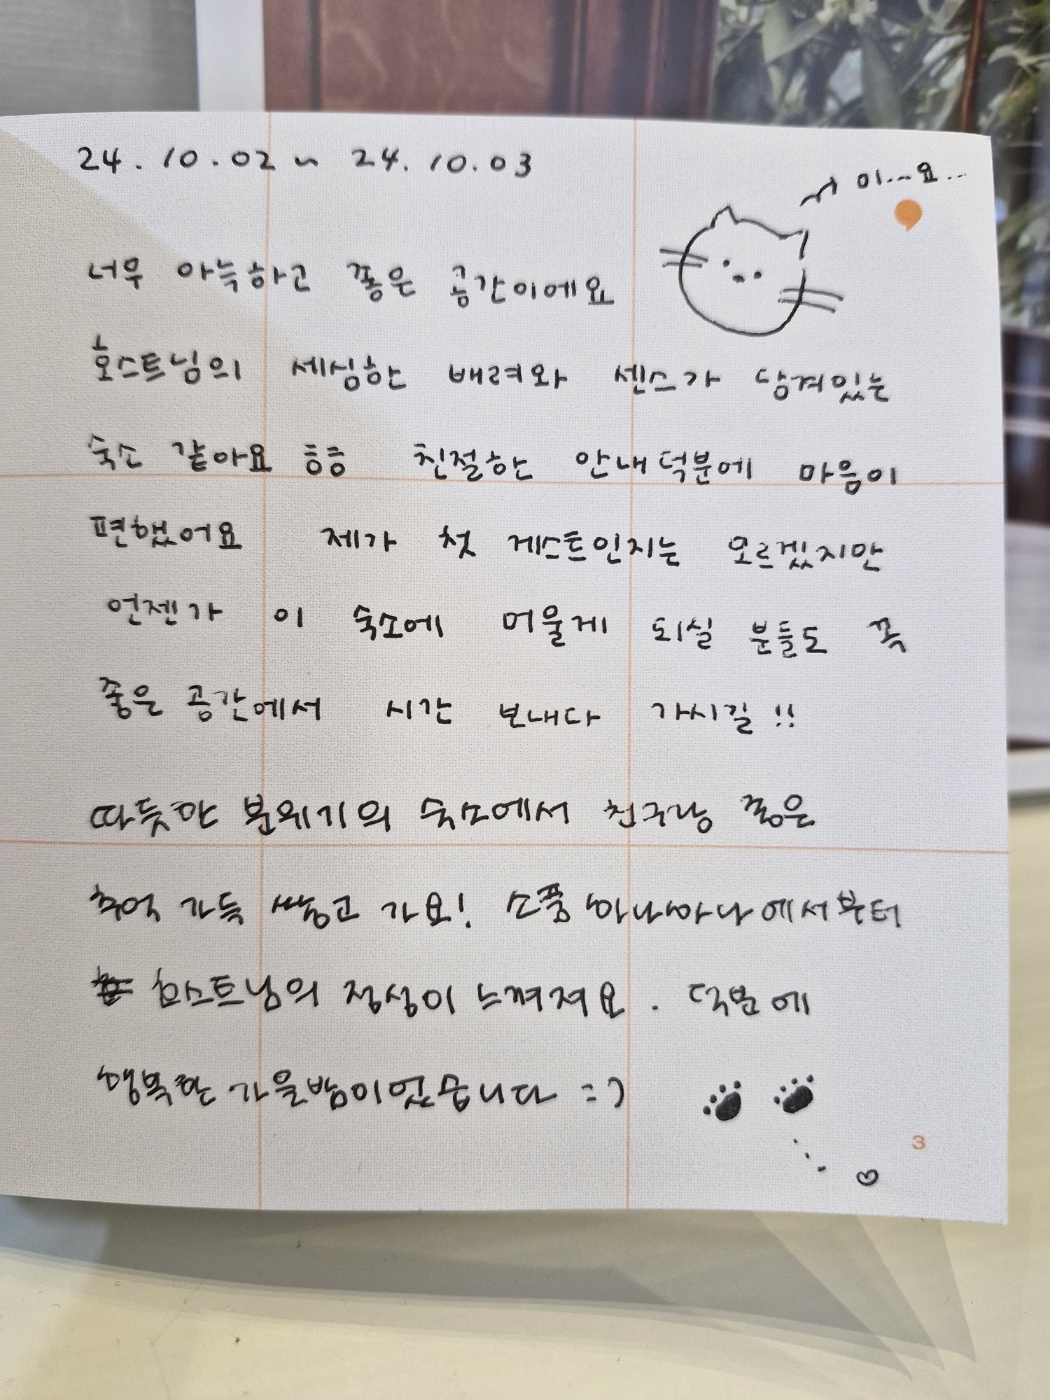 24.10.02 ~ 24.10.03
미...요...
너무 아늑하고 좋은 공간이에요
호스트님의 세심한 배려와 센스가 담겨있는
숙소 같아요 흠흠 친절한 안내덕분에 마음이
편했어요 제가 첫 게스트인지는 모르겠지만
언젠가 이 숙소에 머물게 되실 분들도 꼭
좋은 공간에서 시간 보내다 가시길!!
따듯한 분위기의 숙소에서 친구랑 좋은
추억 가득 쌓고 가요! 소품 하나하나에서부터
호스트님의 정성이 느껴져요. 덕분에
행복한 가을밤이었습니다 =)
3